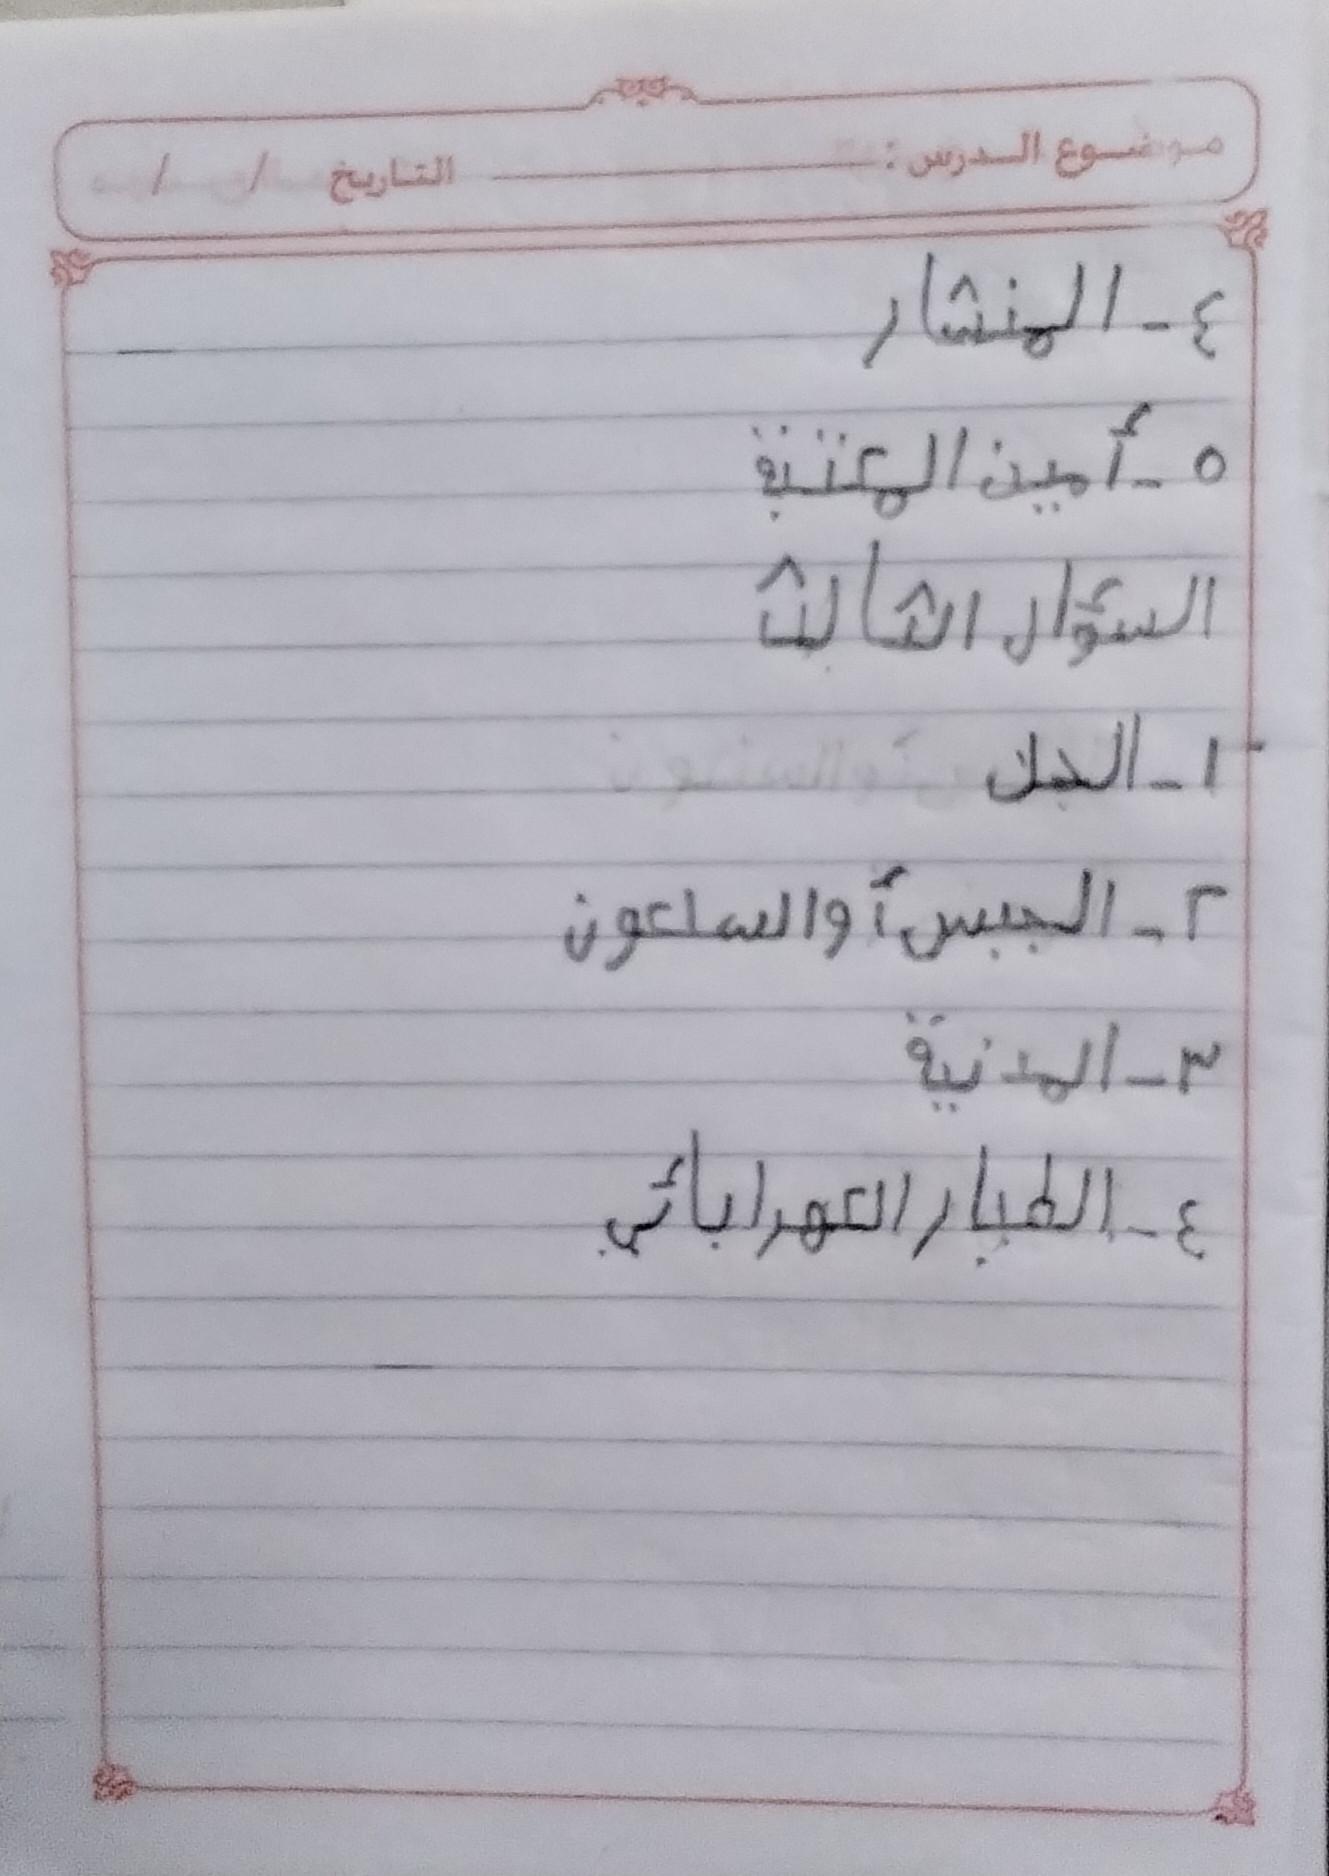 موضوع الدرس : التاريخ / /
٤ - المنشار
٥ - أمين المكتبة
السؤال الثالث
١ - الجك
٢ - الجبس أوالساعون
٣ - المدنية
٤ - الطيار الكهرابائي